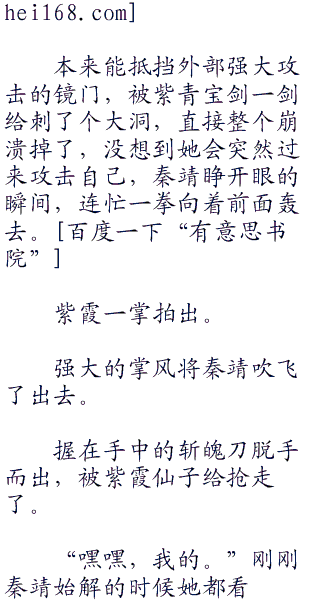 hei168.com]
本来能抵挡外部强大攻
击的镜门，被紫青宝剑一剑
给刺了个大洞，直接整个崩
溃掉了，没想到她会突然过
来攻击自己，秦靖睁开眼的
瞬间，连忙一拳向着前面轰
去。[百度一下“有意思书
院”]
紫霞一掌拍出。
强大的掌风将秦靖吹飞
了出去。
握在手中的斩魄刀脱手
而出，被紫霞仙子给抢走
了。
“嘿嘿，我的。”刚刚
秦靖始解的时候她都看